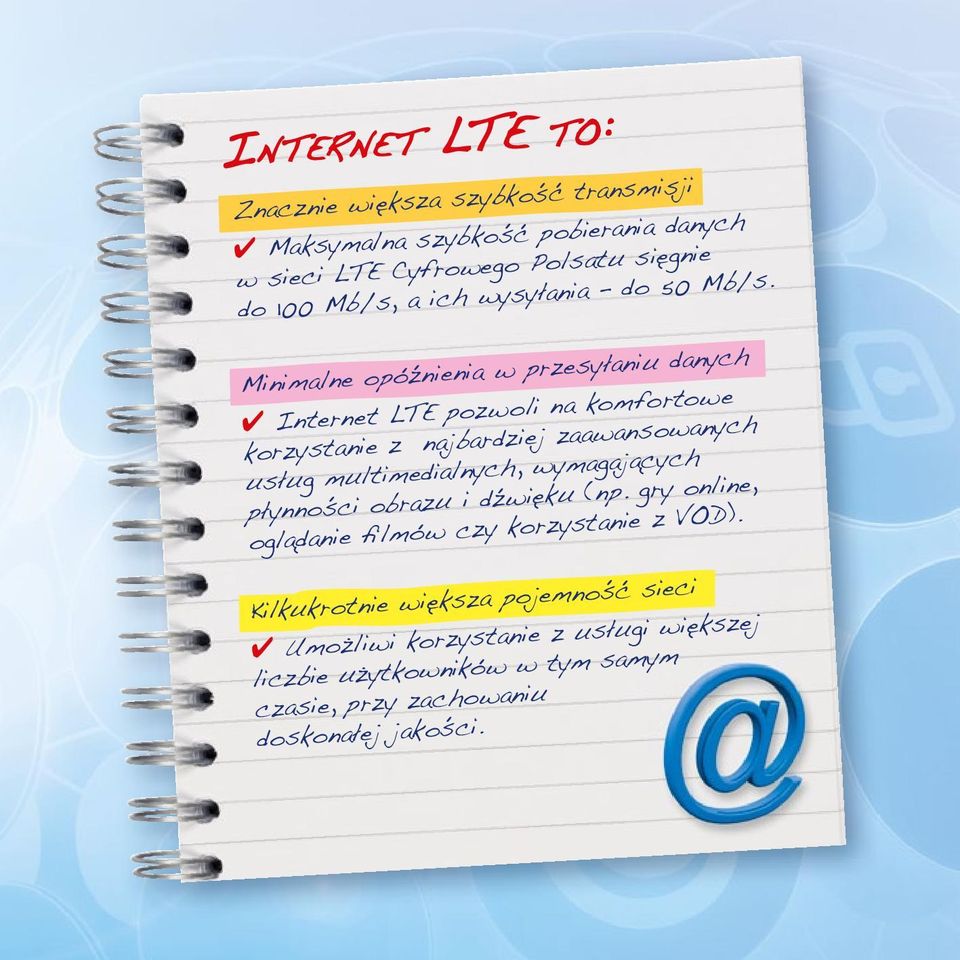 INTERNET LTE TO:
Znacznie większa szybkość transmisji
✔ Maksymalna szybkość pobierania danych
w sieci LTE Cyfrowego Polsatu sięgnie
do 100 Mb/s, a ich wysyłania – do 50 Mb/s.
Minimalne opóźnienia w przesyłaniu danych
✔ Internet LTE pozwoli na komfortowe
korzystanie z najbardziej zaawansowanych
usług multimedialnych, wymagających
płynności obrazu i dźwięku (np. gry online,
oglądanie filmów czy korzystanie z VOD).
Kilkukrotnie większa pojemność sieci
✔ Umożliwi korzystanie z usługi większej
liczbie użytkowników w tym samym
czasie, przy zachowaniu
doskonałej jakości.
@